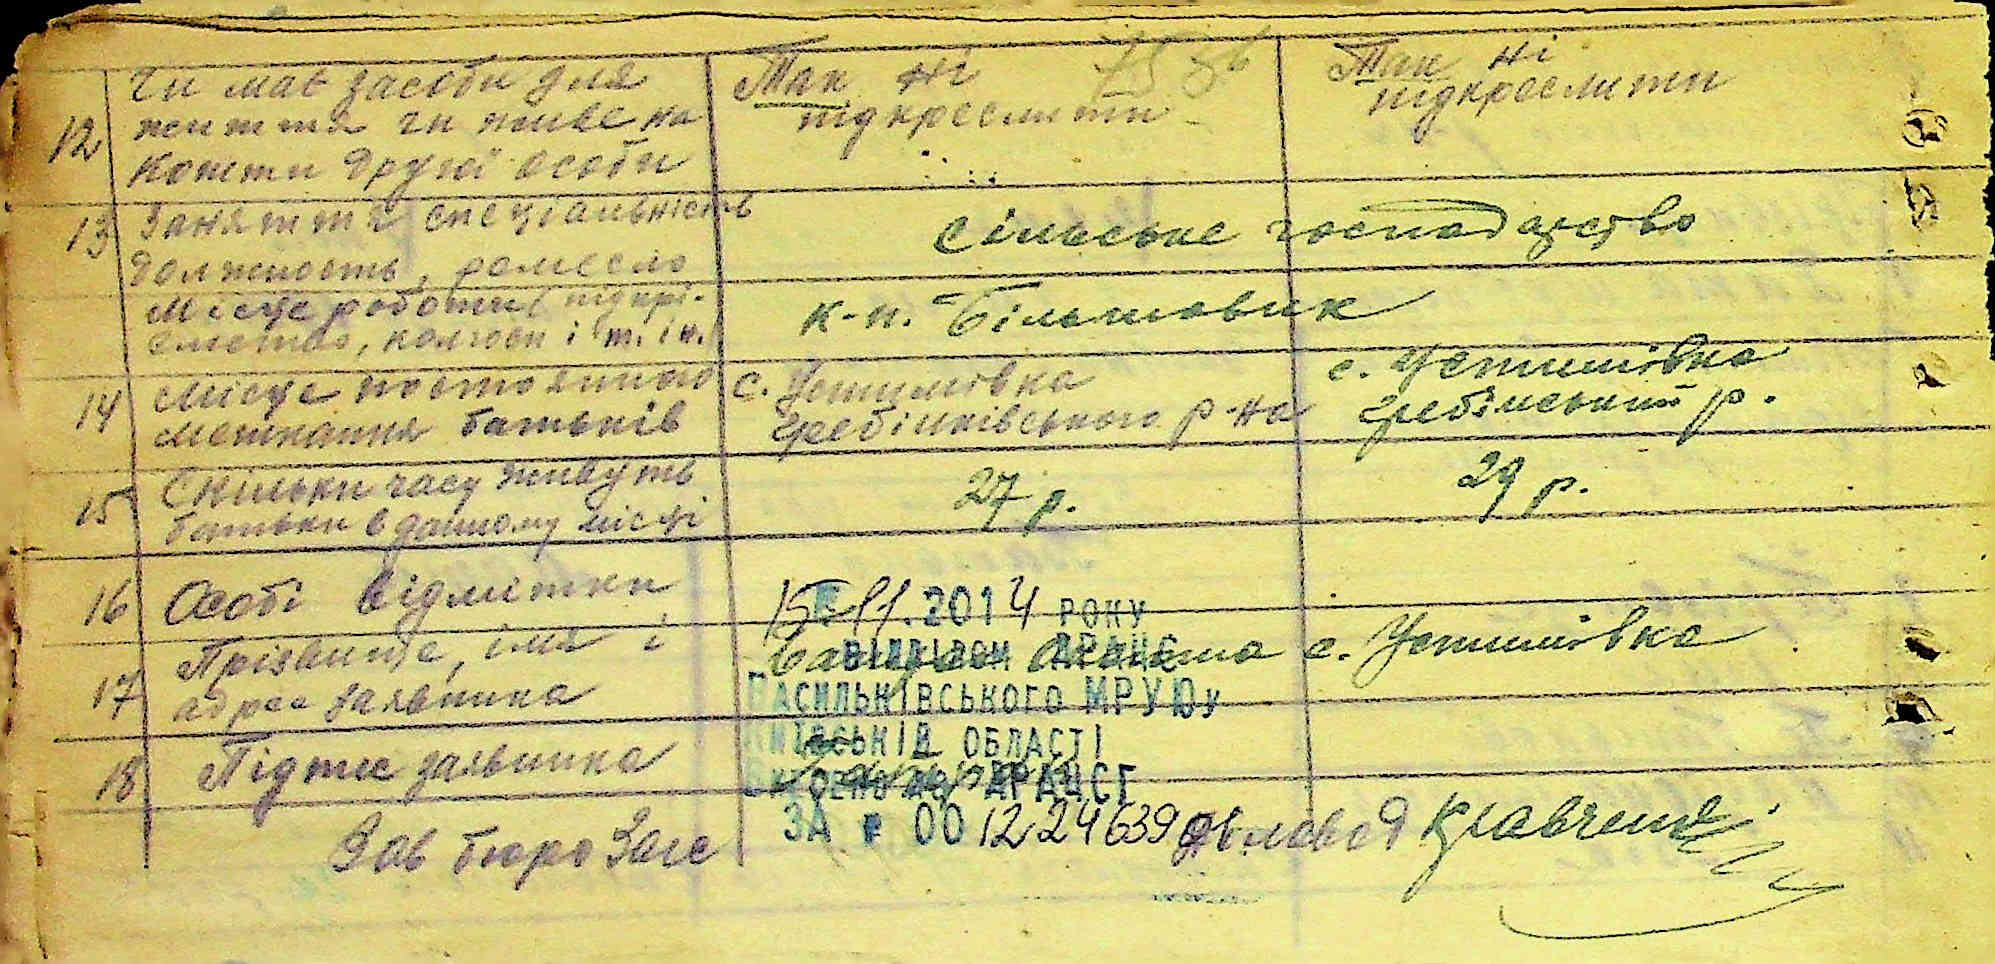 12 Чи має засоби для
життя чи живе на
кошти другої особи
Так ні
підкреслити
Так ні
підкреслити
13 Заняття спеціальність
должность, ремесло
Сільське господарство
Місце роботи (підпрі-
ємство, колгосп і т. ін.)
к-п. Більшовик
14 Місце постоянного
мешкання батьків
с. Устимівка
Гребінківського р-на
с. Устимівка
Гребінський р.
15 Скільки часу живуть
батьки в даному місці
27 р.
29 р.
16 Особі відмітки
17 Прізвище, імя і
адреса заявника
с. Устимівка
18 Підпис заявника
15.11.2014 РОКУ
ВІДДІЛОМ ДРАЦС
ВАСИЛЬКІВСЬКОГО МРУЮ у
КИЇВСЬКІЙ ОБЛАСТІ
ДРАЦСГ
ЗА № 00122 24639
Зав бюро Загс
Кравченко